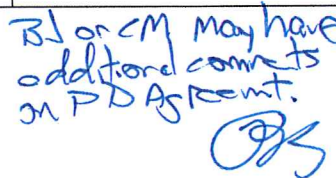 BJ or CM may have
additional comments
on PD Agreemt.